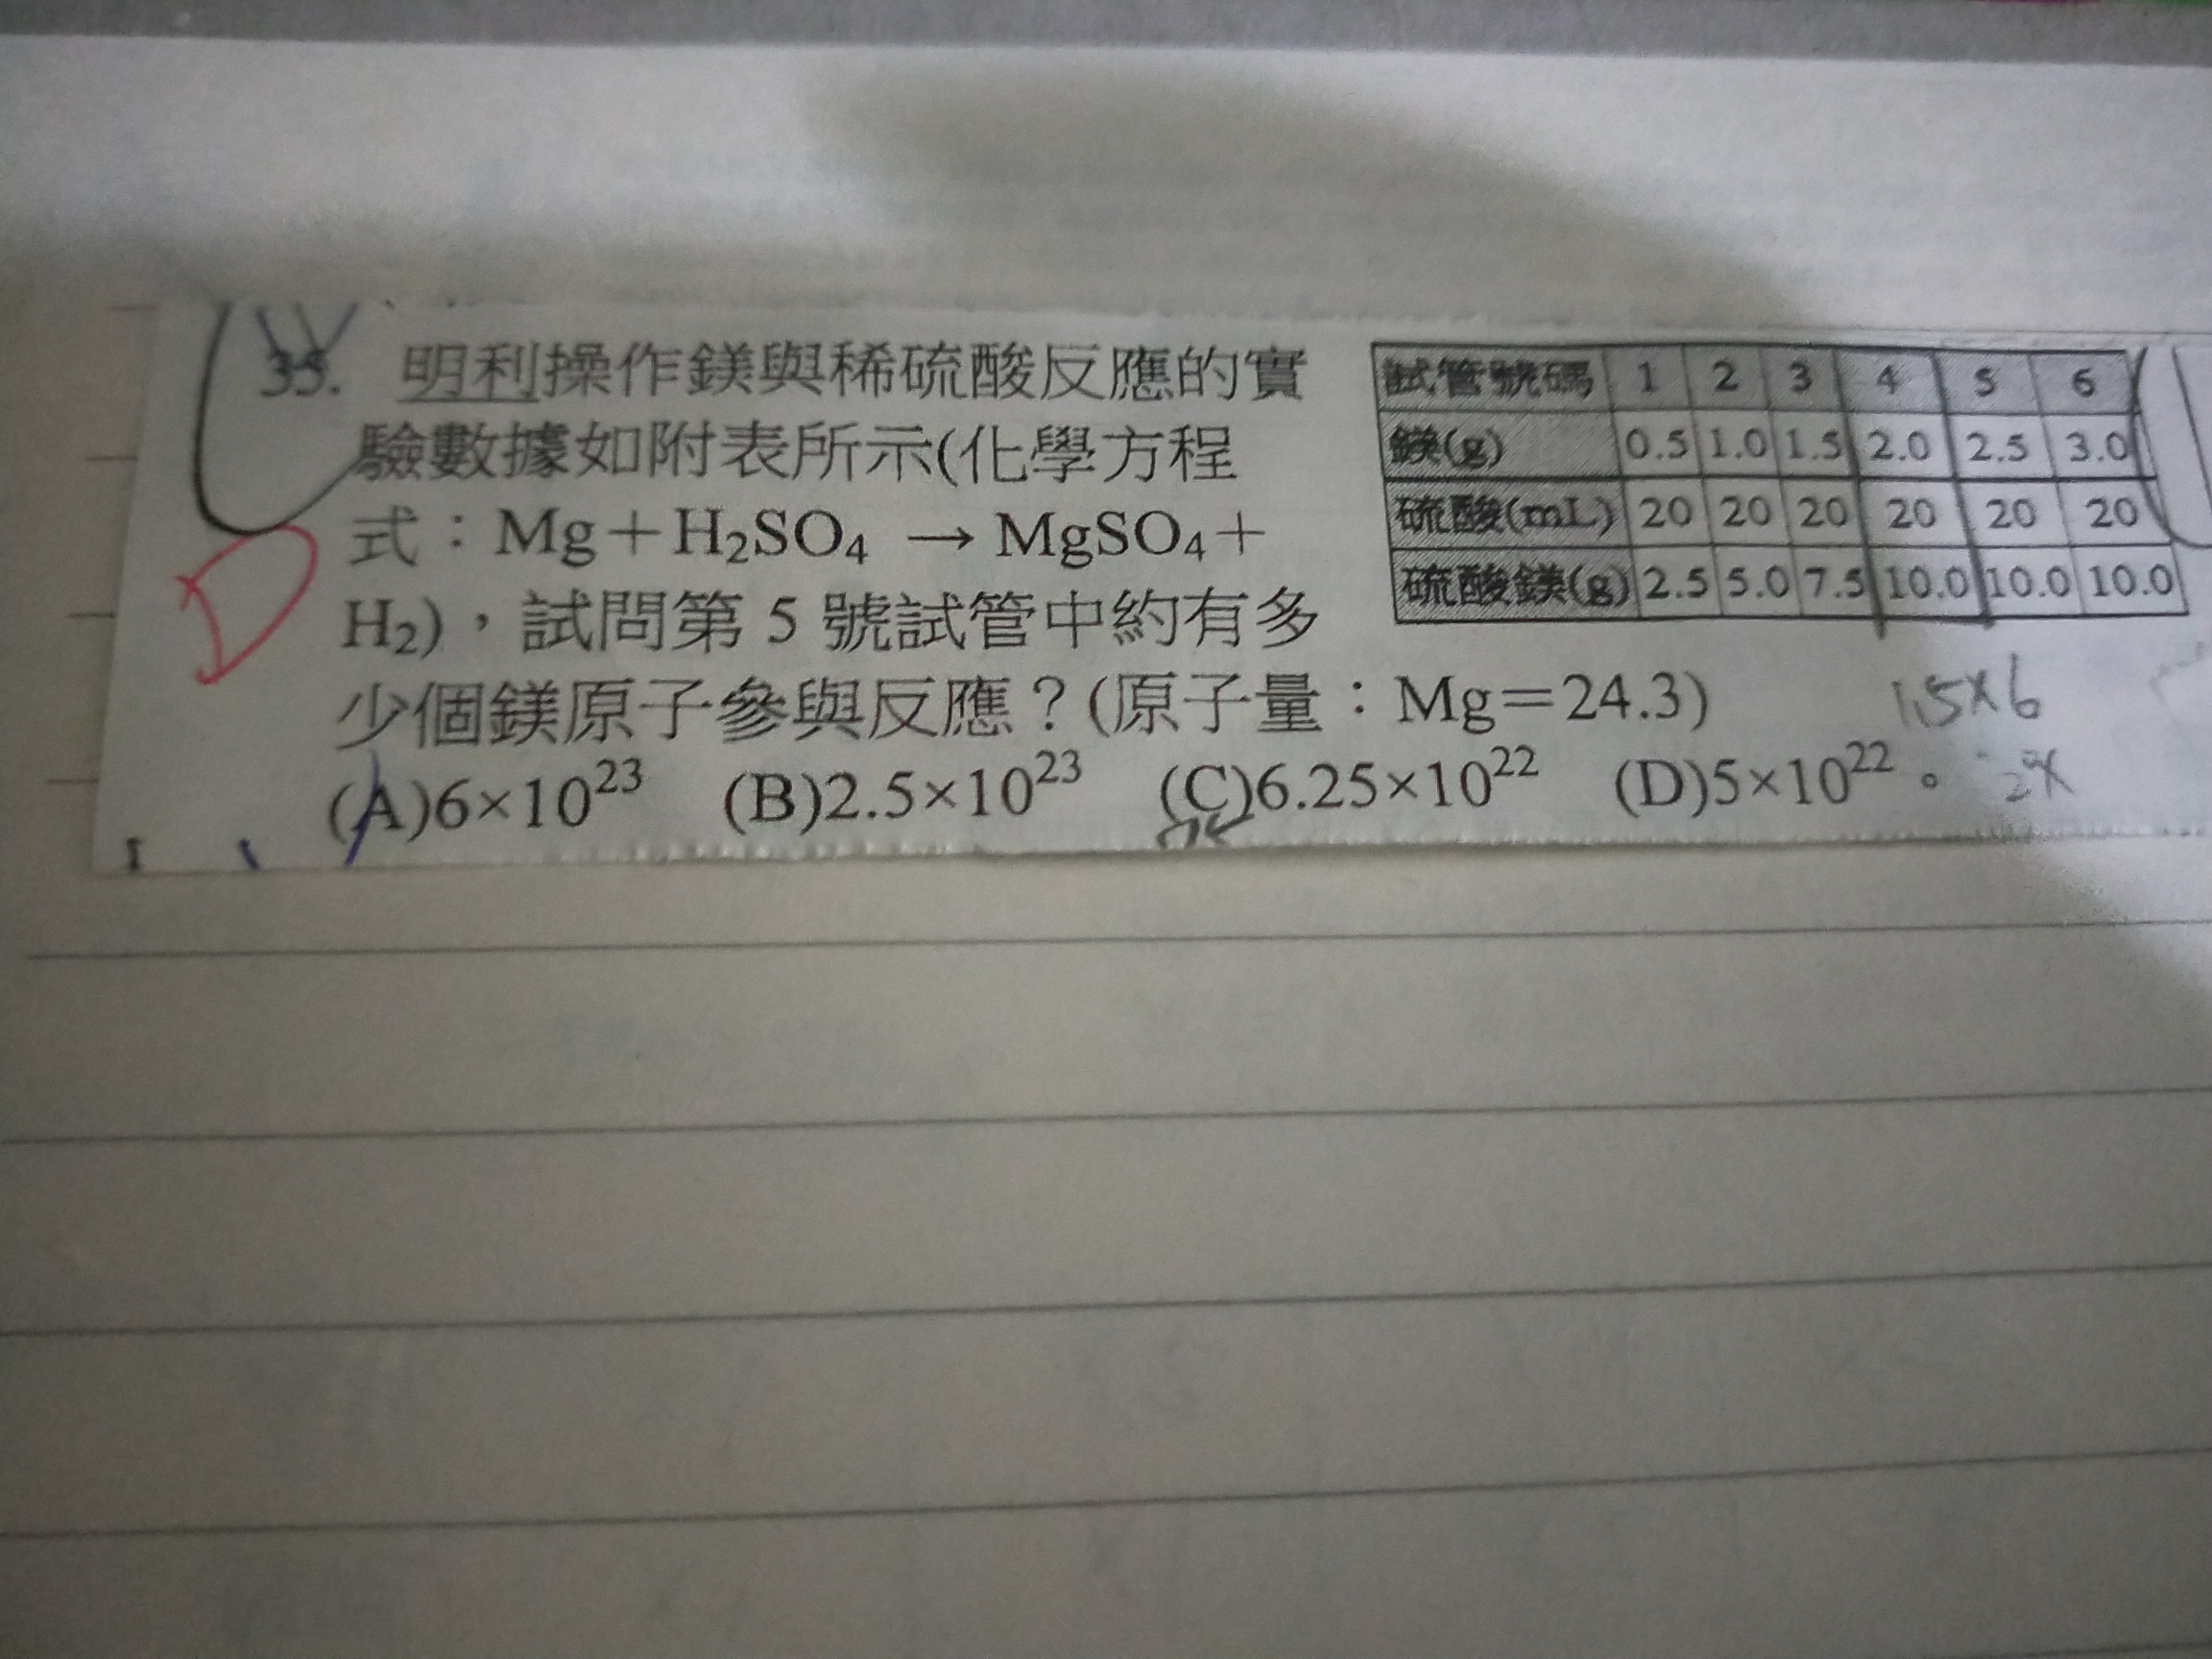 35. 明利操作鎂與稀硫酸反應的實
驗數據如附表所示(化學方程
式：Mg＋H₂SO₄ → MgSO₄＋
H₂)，試問第 5 號試管中約有多
少個鎂原子參與反應？(原子量：Mg＝24.3)
(A)6×10²³ (B)2.5×10²³ (C)6.25×10²² (D)5×10²²。
試管號碼 1 2 3 4 5 6
鎂(g) 0.5 1.0 1.5 2.0 2.5 3.0
硫酸(mL) 20 20 20 20 20 20
硫酸鎂(g) 2.5 5.0 7.5 10.0 10.0 10.0
D
1.5×6